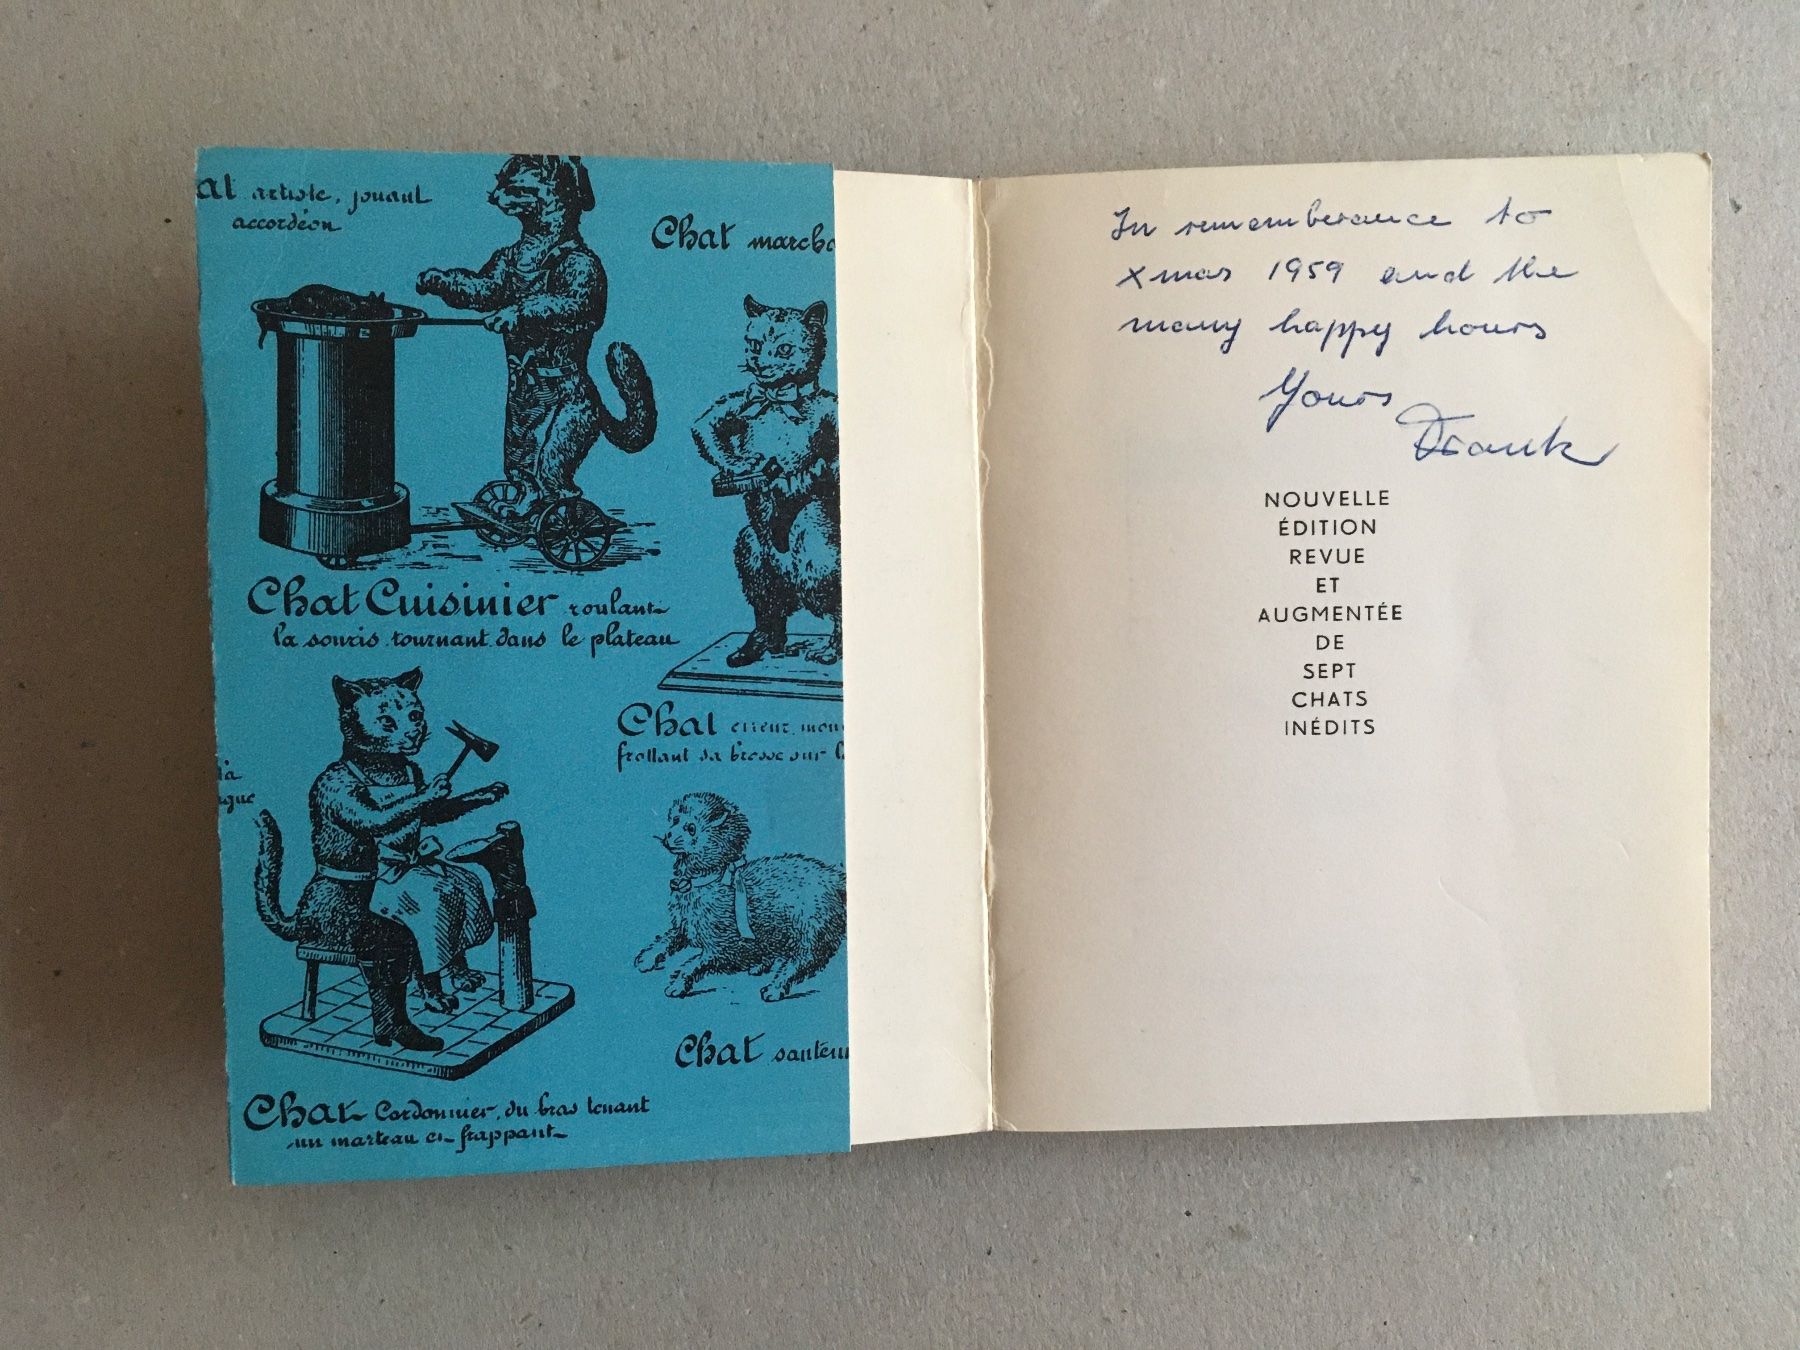 at artiste, jouant
accordéon
Chat marcha
Chat Cuisinier roulant
la souris tournant dans le plateau
Chat cireur, mou
frottant sa brosse sur l
Chat sauteu
Chat Cordonnier, du bras tenant
un marteau et frappant
In rememberance to
xmas 1959 and the
many happy hours
Yours
Frank
NOUVELLE
ÉDITION
REVUE
ET
AUGMENTÉE
DE
SEPT
CHATS
INÉDITS